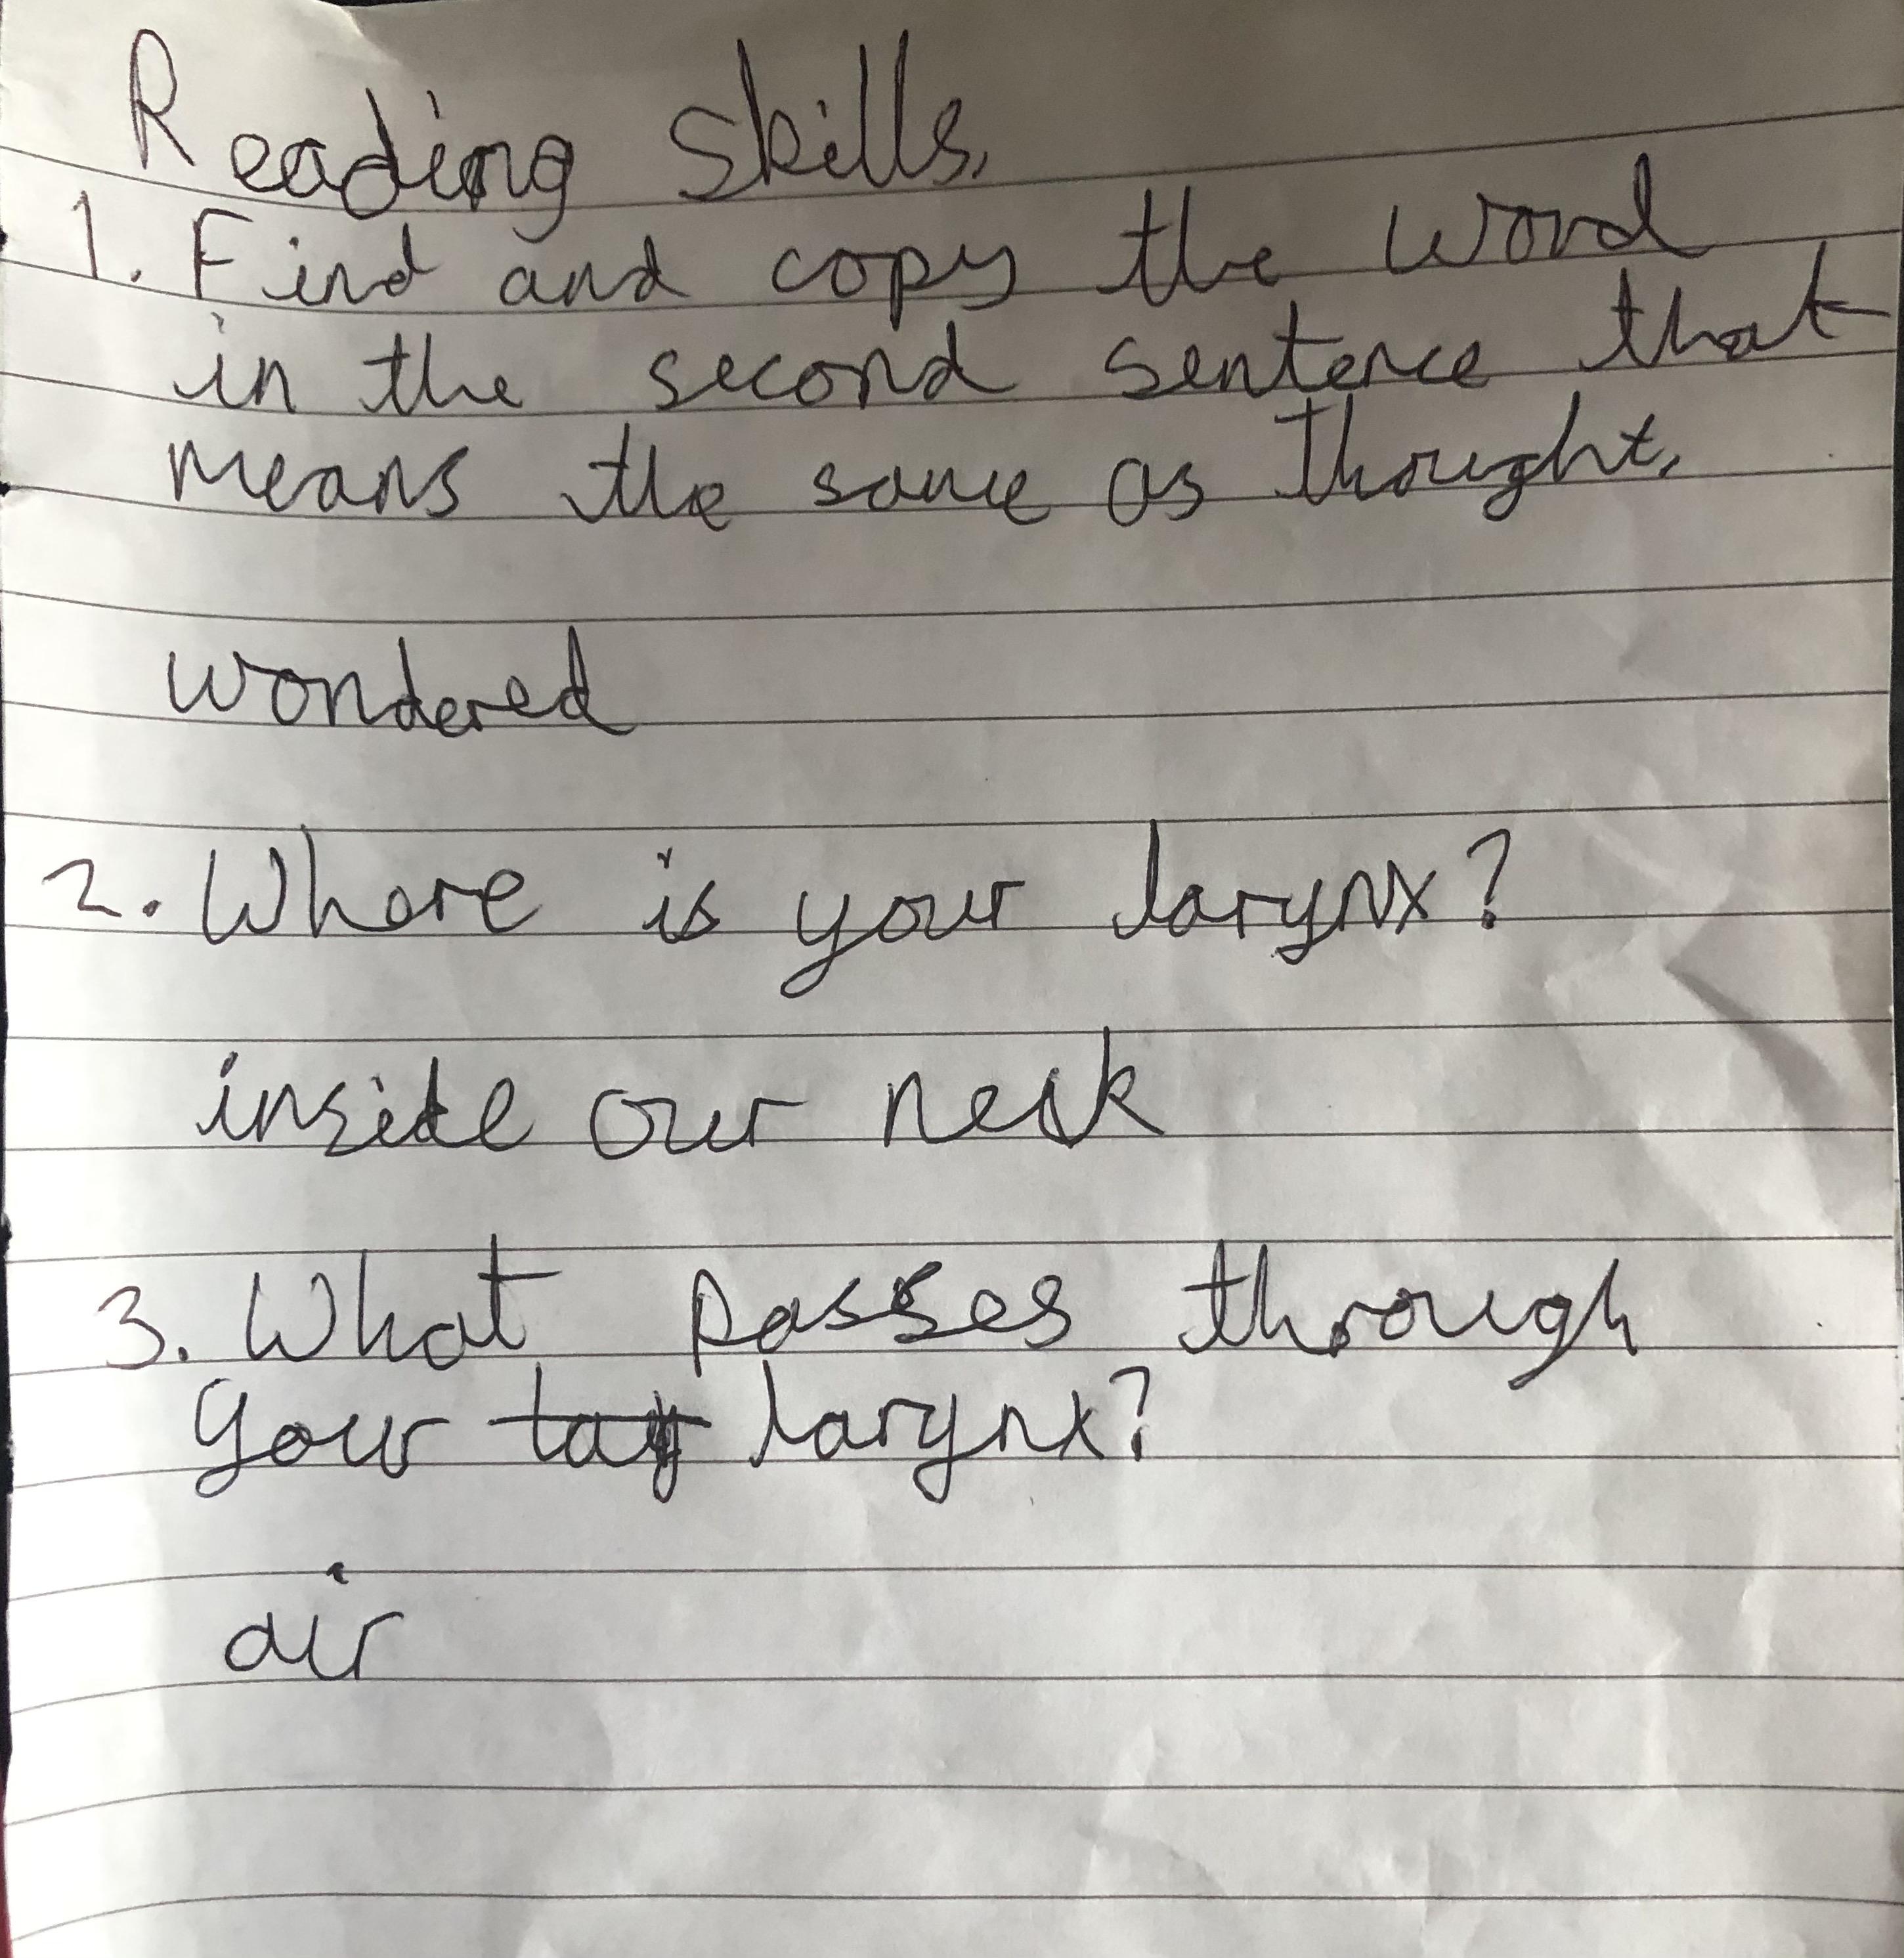 Reading skills.
1. Find and copy the word
in the second sentence that
means the same as thought.
wondered
2. Where is your larynx?
inside our neck
3. What passes through
your tay larynx?
air